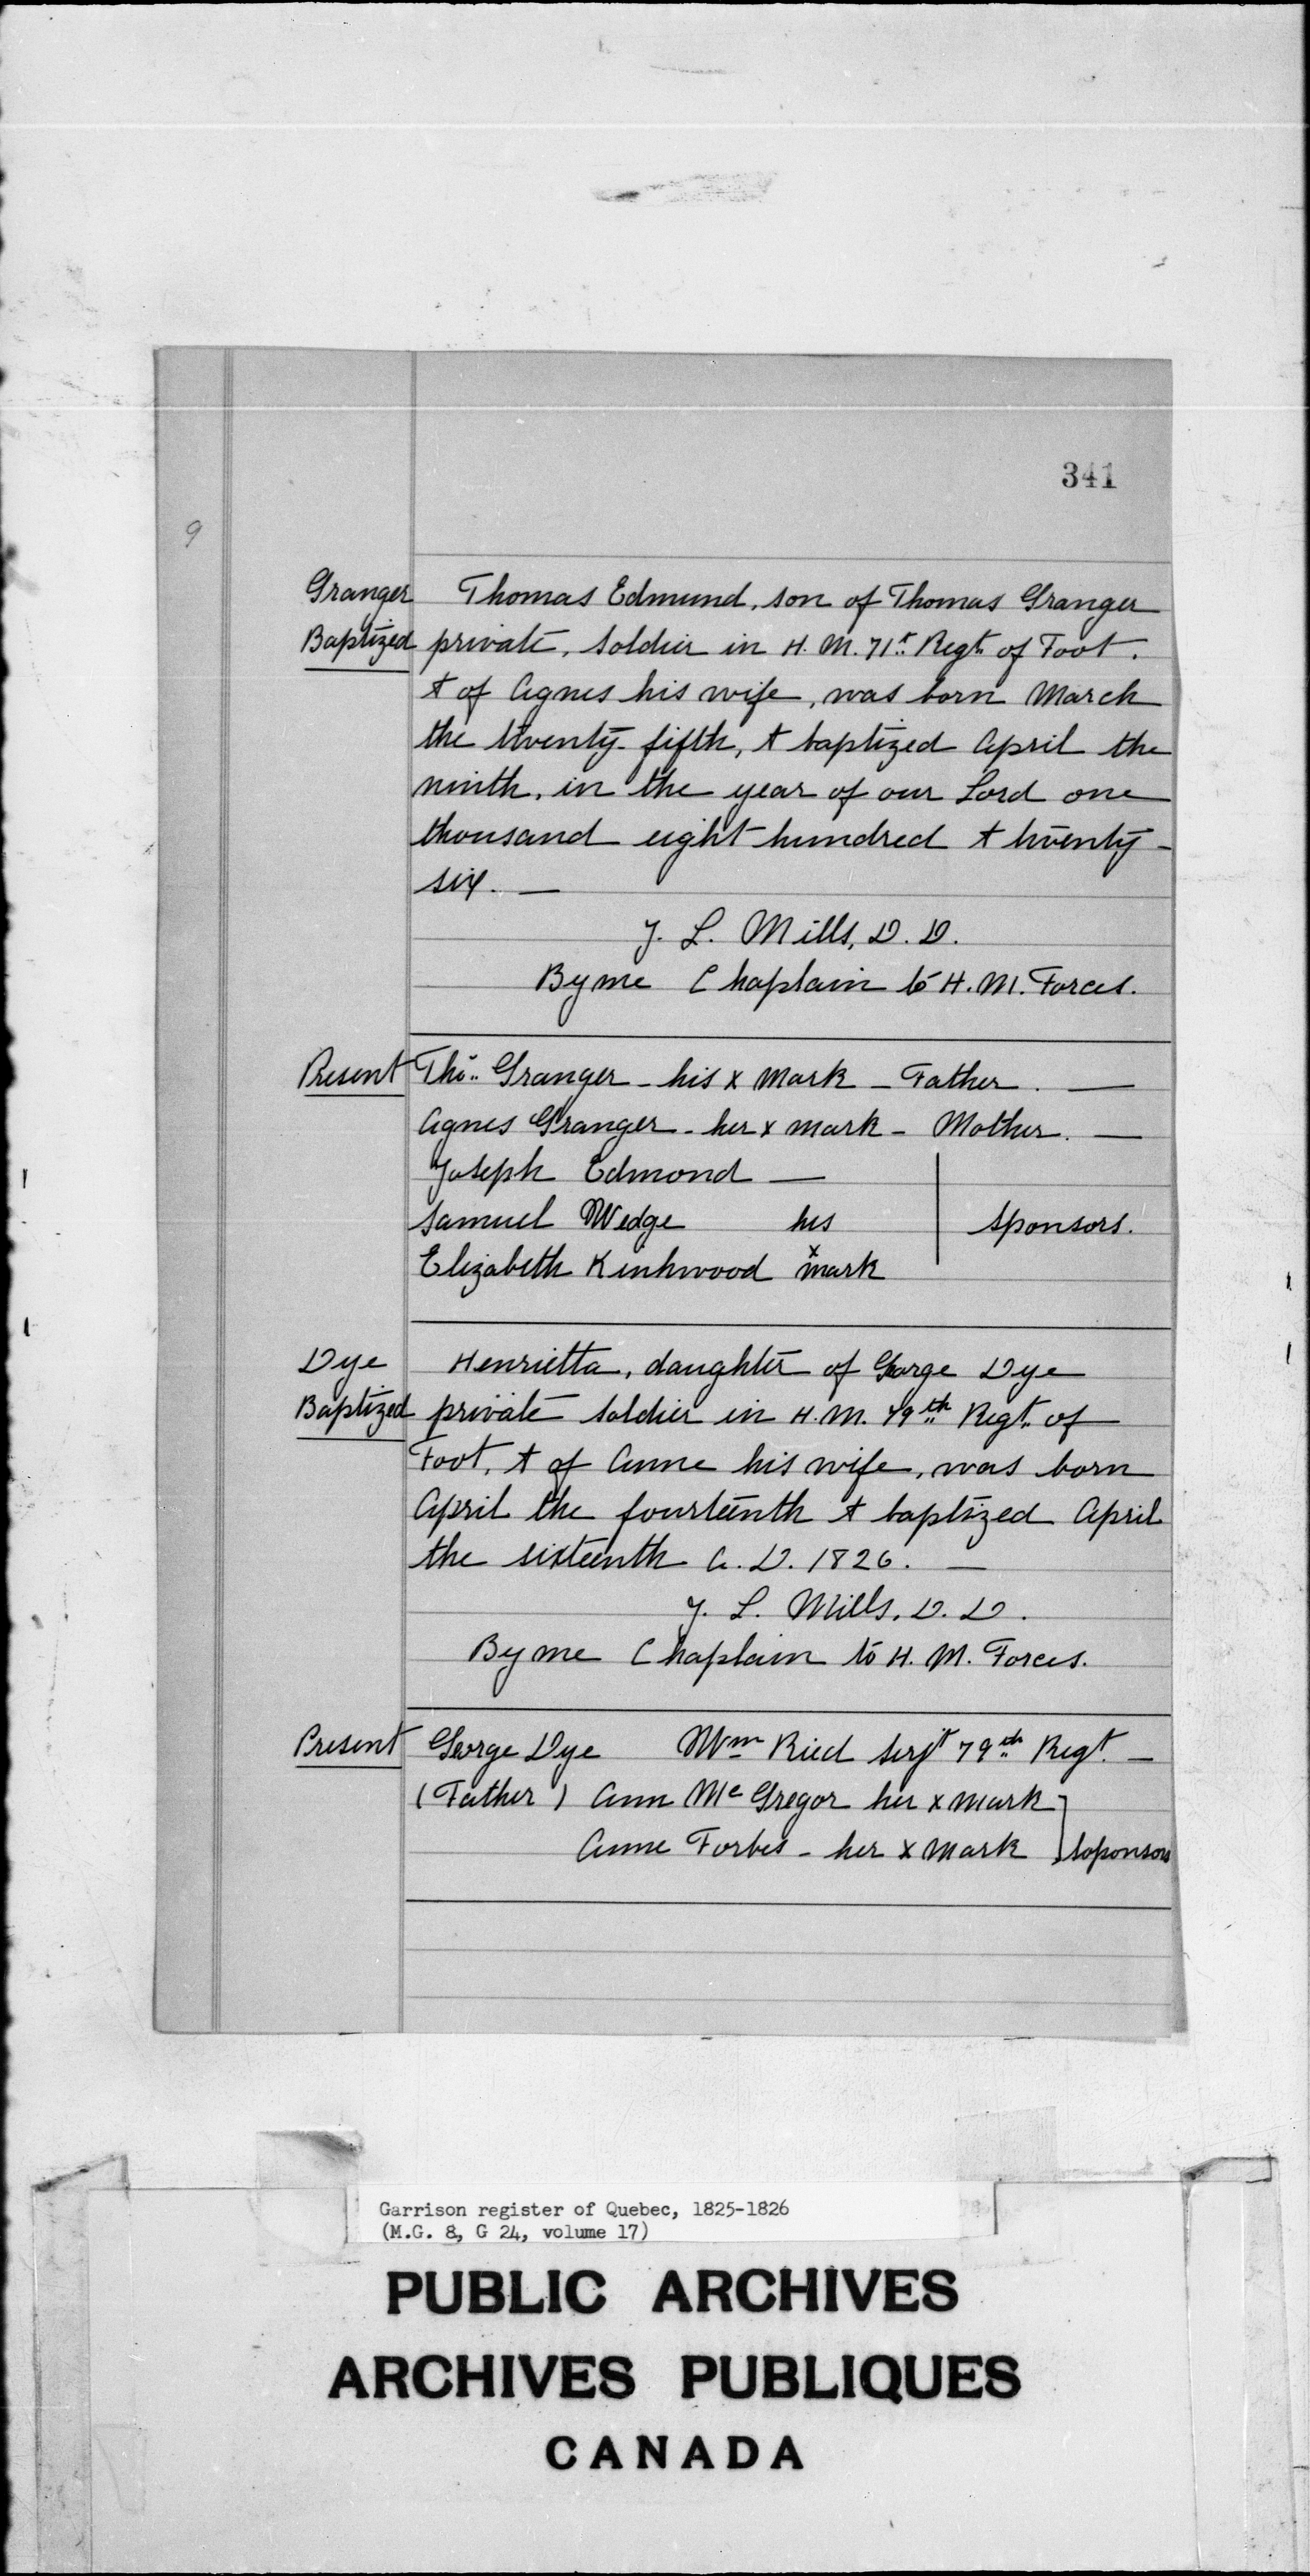 341
9
Granger Thomas Edmund, son of Thomas Granger
Baptized private, soldier in H. M. 71st Regt. of Foot.
& of Agnes his wife, was born March
the twenty-fifth, & baptized April the
ninth, in the year of our Lord one
thousand eight hundred & twenty-
six. —
J. L. Mills, D. D.
By me Chaplain to H. M. Forces.
Present Tho. Granger - his x mark - Father. —
Agnes Granger - her x mark - Mother. —
Joseph Edmond —
Samuel Wedge his sponsors.
x
Elizabeth Kinkwood mark
Dye Henrietta, daughter of George Dye
Baptized private soldier in H. M. 79th Regt. of
Foot, & of Anne his wife, was born
April the fourteenth & baptized April
the sixteenth A. D. 1826. —
J. L. Mills, D. D.
By me Chaplain to H. M. Forces.
Present George Dye Wm Ried serjt 79th Regt. —
(Father) Ann McGregor her x mark
Anne Forbes - her x mark Sponsors
Garrison register of Quebec, 1825-1826
(M.G. 8, G 24, volume 17)
PUBLIC ARCHIVES
ARCHIVES PUBLIQUES
CANADA